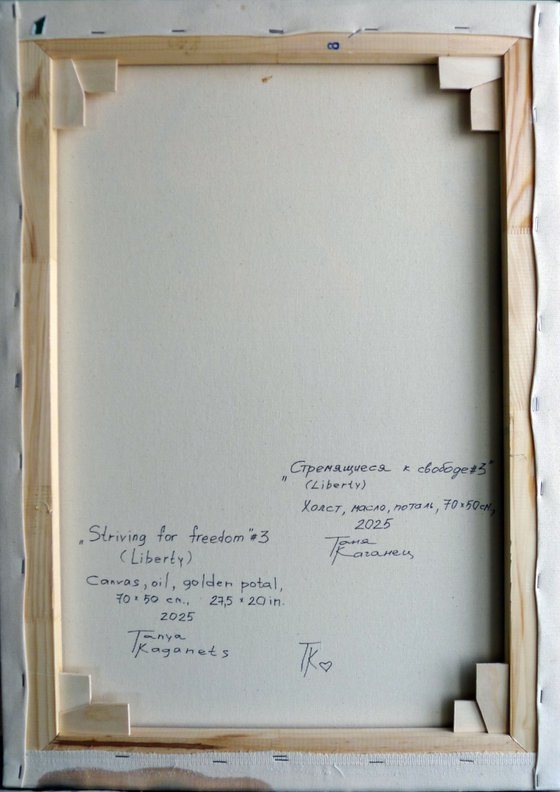 8
„Стремящиеся к свободе#3"
(Liberty)
Холст, масло, поталь, 70×50 см,
2025
Таня
Каганец
„Striving for freedom"#3
(Liberty)
Canvas, oil, golden potal,
70×50 cm., 27,5×20 in.
2025
Tanya
Kaganets
TK♡